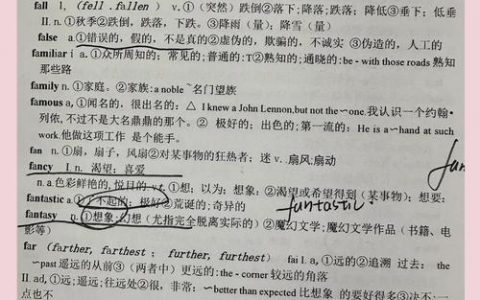 fall 1, (fell .fallen ) v.①(突然)跌倒②落下;降落;跌落; 降低③垂下; 低垂
II. n.①秋季②跌倒, 跌落, 下跌。③降雨(量); 降雪(量)
false a①错误的, 假的, 不是真的②虚伪的, 欺骗的, 不诚实 ③伪造的, 人工的
familiar i a.①众所周知的; 常见的; 普通的: T②熟知的; 通晓的: be - with those roads 熟知
那些路
family n.①家庭。②家族: a noble ~名门望族
famous a, ①闻名的, 很出名的: △ I knew a John Lennon, but not the 一one.我认识一个约翰•
列侬, 不过不是大名鼎鼎的那个。② 极好的; 出色的; 第一流的: He is a一hand at such
work.他做这项工作 是个能手。
fan n.①扇, 扇子, 风扇②对某事物的狂热者; 迷 v. 扇风;扇动
fancy I. n. 渴望; 喜爱
n. a.色彩鲜艳的, 悦目的 v t. ①想; 以为; 想象; ②渴望或希望得到(某事物); 想要:
fantastic a.①了不起的; 极好②荒诞的; 奇异的 fantastic
fantasy n.①想象; 幻想(尤指完全脱离实际的)②魔幻文学; 魔幻文学作品(书籍、电
影等)
far (farther, farthest ; further, furthest) fai I. a, ①远的②追溯 过去: the
一past 遥远的从前③ (两者中) 更远的: the - corner 较远的角落
II. ad, ①远; 遥远; 往远处②很, 非常; 一better than expected 比想象 的要好得多③决不·一
点也不